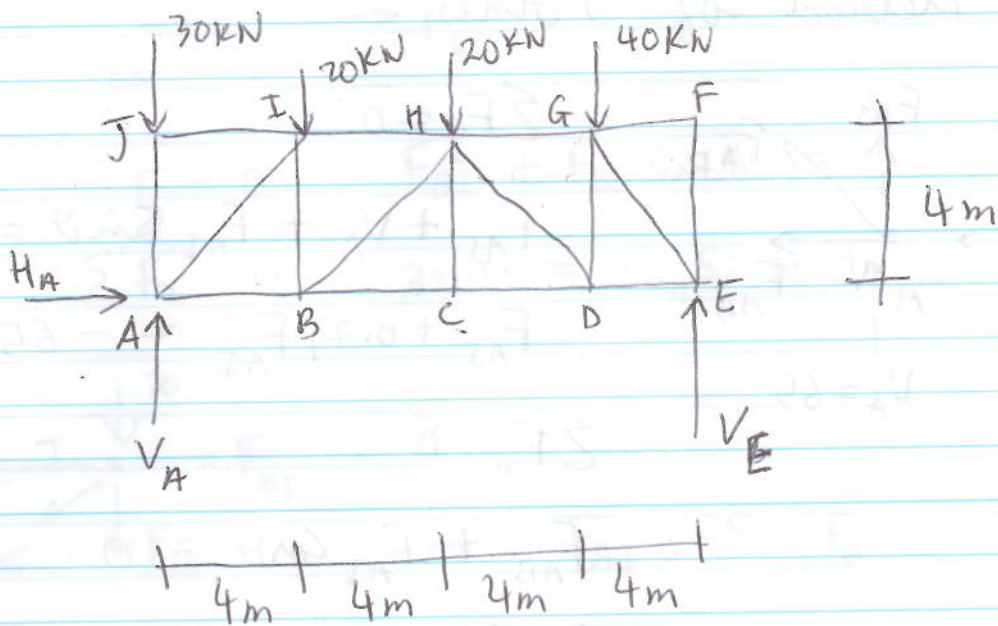 30KN 20KN 20KN 40KN
J I H G F
4m
H_A
A B C D E
V_A V_E
4m 4m 4m 4m